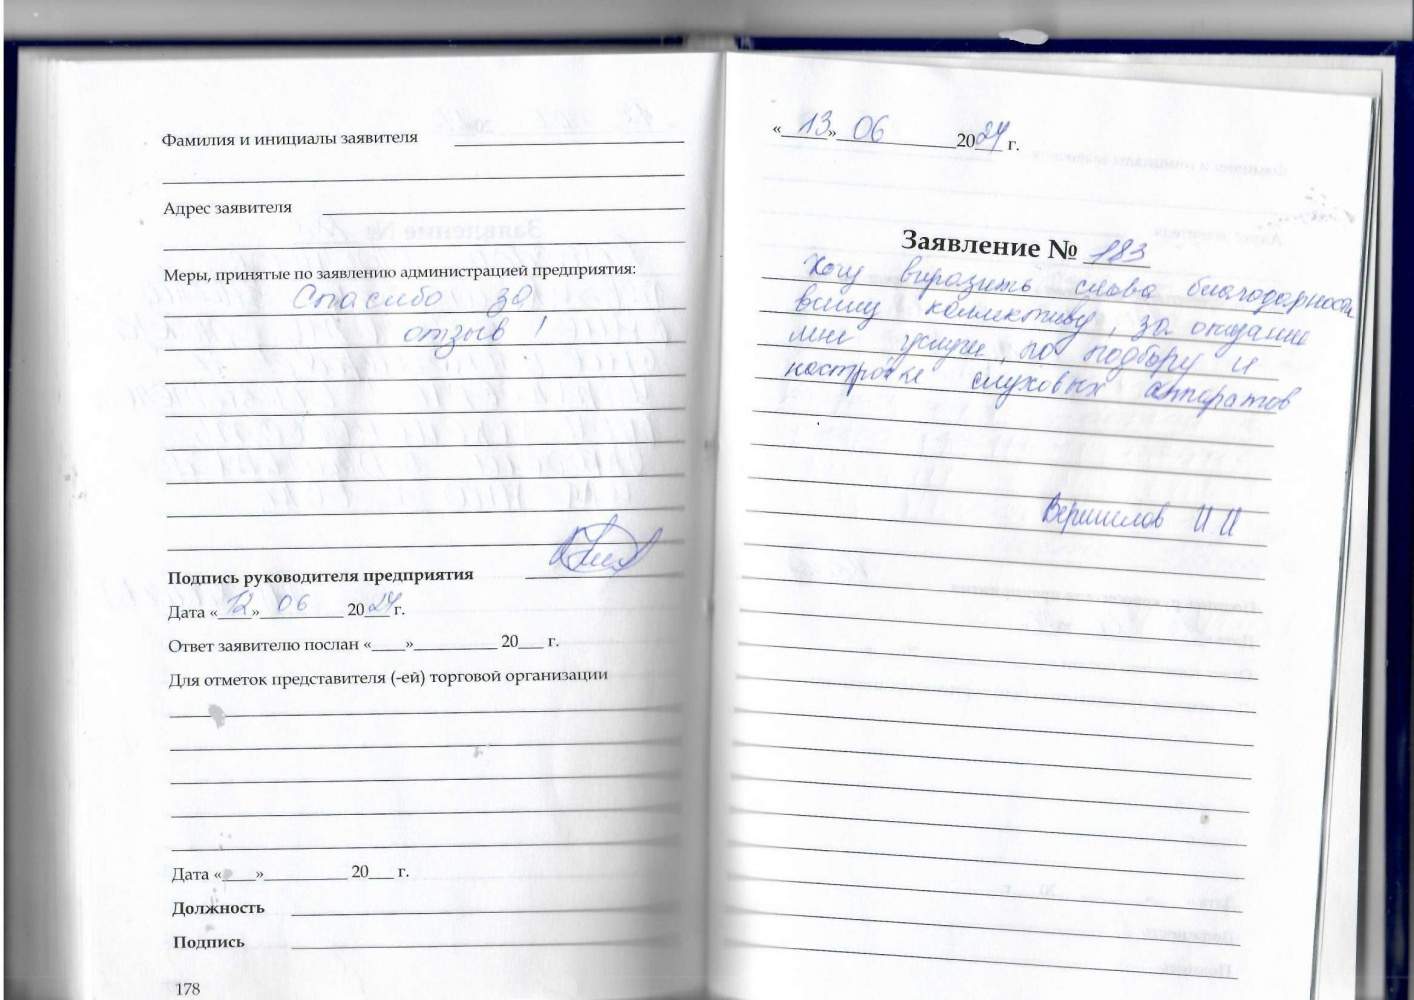 Фамилия и инициалы заявителя
Адрес заявителя
Меры, принятые по заявлению администрацией предприятия:
Спасибо за
отзыв !
Подпись руководителя предприятия
Дата «12» 06 2024 г.
Ответ заявителю послан «____»__________ 20___ г.
Для отметок представителя (-ей) торговой организации
Дата «____»__________ 20___ г.
Должность
Подпись
178
«13» 06 2024 г.
Заявление № 183
Хочу выразить слова благодарности
вашему коллективу, за оказание
мне услуги, по подбору и
настройке слуховых аппаратов
И И